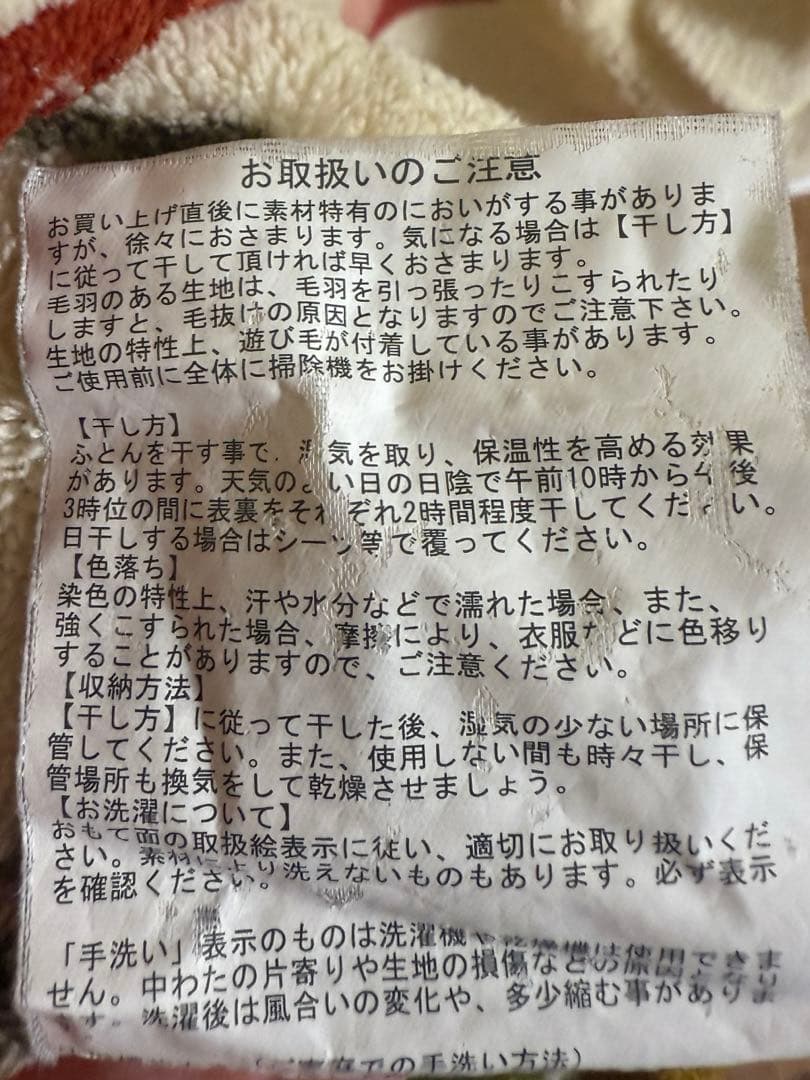 お取扱いのご注意
お買い上げ直後に素材特有のにおいがする事がありま
すが、徐々におさまります。気になる場合は【干し方】
に従って干して頂ければ早くおさまります。
毛羽のある生地は、毛羽を引っ張ったりこすられたり
しますと、毛抜けの原因となりますのでご注意下さい。
生地の特性上、遊び毛が付着している事があります。
ご使用前に全体に掃除機をお掛けください。
【干し方】
ふとんを干す事で、湿気を取り、保温性を高める効果
があります。天気のよい日の日陰で午前10時から午後
3時位の間に表裏をそれぞれ2時間程度干してください。
日干しする場合はシーツ等で覆ってください。
【色落ち】
染色の特性上、汗や水分などで濡れた場合、また、
強くこすられた場合、摩擦により、衣服などに色移り
することがありますので、ご注意ください。
【収納方法】
【干し方】に従って干した後、湿気の少ない場所に保
管してください。また、使用しない間も時々干し、保
管場所も換気をして乾燥させましょう。
【お洗濯について】
おもて面の取扱絵表示に従い、適切にお取り扱いくだ
さい。素材により洗えないものもあります。必ず表示
を確認ください。
「手洗い」表示のものは洗濯機や乾燥機は使用できま
せん。中わたの片寄りや生地の損傷など
洗濯後は風合いの変化や、多少縮む事があり
(ご家庭での手洗い方法)